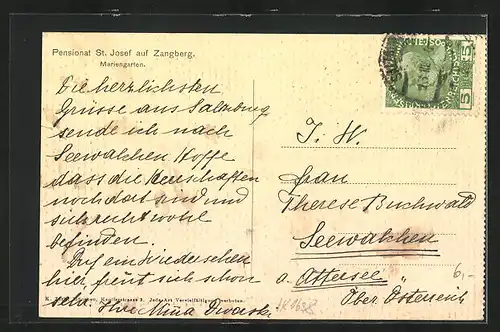 Pensionat St. Josef auf Zangberg.
Mariengarten.
Die herzlichsten
Grüsse aus Salzburg
sende ich nach
Seewalchen Hoffe
dass die Herrschaften
noch dort sind und
sich recht wohl
befinden.
Auf ein Wiedersehen
hier freut sich schon
sehr. Ihre Mina
I. W.
Frau
Therese Buchwald
Seewalchen
a. Attersee
Ober Österreich
6.-
5